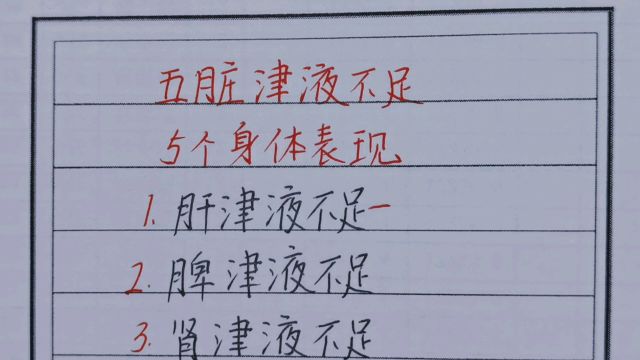 五脏津液不足
5个身体表现
1. 肝津液不足一
2. 脾津液不足
3. 肾津液不足